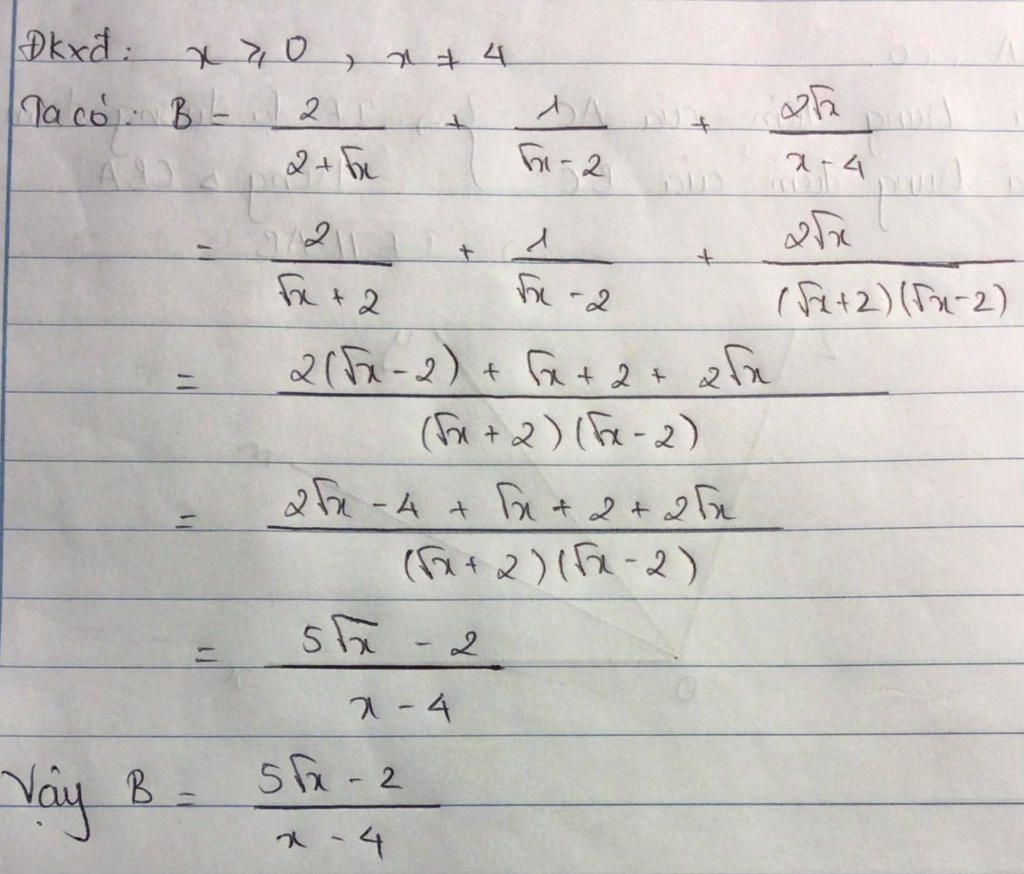 Đkxđ: x ≥ 0, x ≠ 4
Ta có: B = 2/(2+√x) + 1/(√x-2) + 2√x/(x-4)
= 2/(√x+2) + 1/(√x-2) + 2√x/((√x+2)(√x-2))
= (2(√x-2) + √x + 2 + 2√x)/((√x+2)(√x-2))
= (2√x - 4 + √x + 2 + 2√x)/((√x+2)(√x-2))
= (5√x - 2)/(x - 4)
Vậy B = (5√x - 2)/(x - 4)